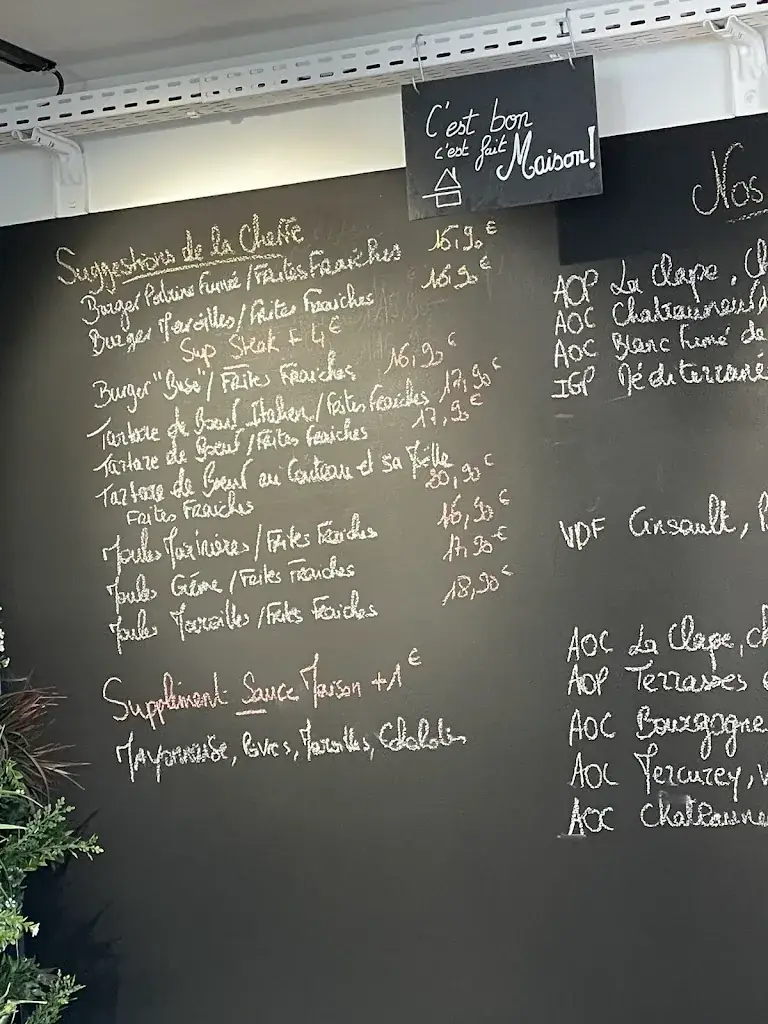 C'est bon
c'est fait
Maison!
Suggestions de la Cheffe
Burger Poitrine Fumée/Frites Fraiches 16,90€
Burger Maroilles/Frites Fraiches 16,90€
Sup Steak + 4€
Burger "Buso"/Frites Fraiches 16,90€
Tartare de Bœuf Italien/Frites Fraiches 17,90€
Tartare de Bœuf/Frites Fraiches 17,90€
Tartare de Bœuf au Couteau et sa
Frites Fraiches 20,90€
Moules Marinières/Frites Fraiches 16,90€
Moules Crème/Frites Fraiches 17,90€
Moules Maroilles/Frites Fraiches 18,90€
Supplément Sauce Maison +1€
Mayonnaise, Poivres, Maroilles, Echalotes
Nos
AOP La Clape, Ch
AOC Chateauneuf d
AOC Blanc Fumé de
IGP Méditerrané
VDF Cinsault,
AOC La Clape, Ch
AOP Terrasses
AOC Bourgogne
AOC Mercurey, V
AOC Chateaune